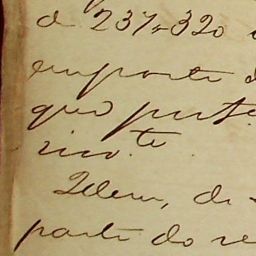 de 237$320
importe d
que perte
vin.te
Idem, de
parte do re